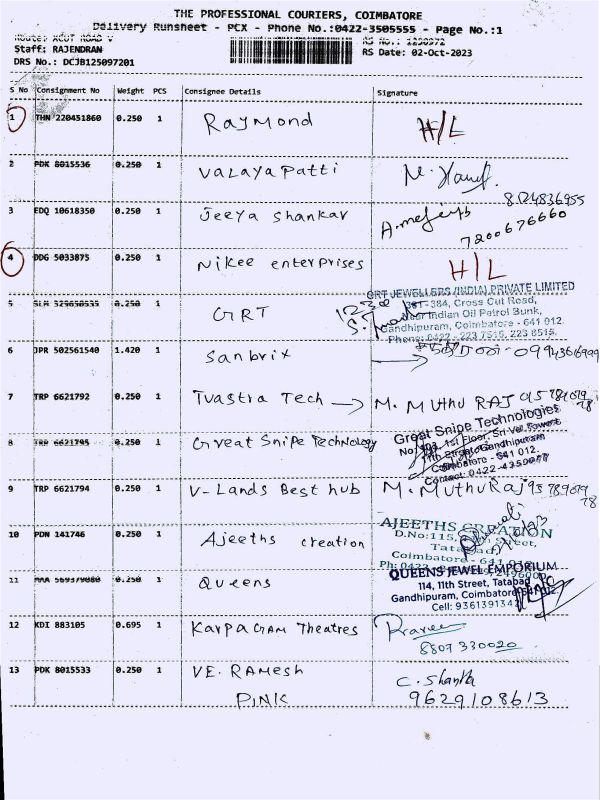 THE PROFESSIONAL COURIERS, COIMBATORE
Delivery Runsheet - PCX - Phone No.:0422-3505555 - Page No.:1
Staff: RAJENDRAN
RS Date: 02-Oct-2023
DRS No.: DCJB125097201
S No Consignment No Weight PCS Consignee Details Signature
1 THN 220451860 0.250 1 Raymond H/L
2 PDK 8015536 0.250 1 Valaya Patti
8124836955
3 EDQ 10618350 0.250 1 Jeeya Shankar
7200676660
4 DDG 5033875 0.250 1 Nikee enterprises H/L
GRT JEWELLERS (INDIA) PRIVATE LIMITED
5 0.250 1 GRT
384, Cross Cut Road,
Indian Oil Petrol Bunk,
Gandhipuram, Coimbatore - 641 012.
Phone: 0422 - 223 7515, 223 8515.
6 JPR 502561540 1.420 1 Sanbrix
7 TRP 6621792 0.250 1 Tvastra Tech → M. MUTHU RAJ
Great Snipe Technologies
8 TRP 6621795 0.250 1 Great Snipe Technology
1st Floor, Sri Vel Towers
Gandhipuram
Coimbatore - 641 012.
Contact: 0422-4350077
9 TRP 6621794 0.250 1 V-Lands Best hub M. Muthu Raj
AJEETHS CREATION
10 PDN 141746 0.250 1 Ajeeths creation
D.No:115,
Coimbatore
QUEENS JEWEL EMPORIUM
11 0.250 1 Queens
114, 11th Street, Tatabad
Gandhipuram, Coimbatore
Cell: 9361391342
12 KDI 883105 0.695 1 KarpaGam Theatres Praveen
8807 330020
13 PDK 8015533 0.250 1 VE. RAMESH C. Shantha
PINK 9629108613